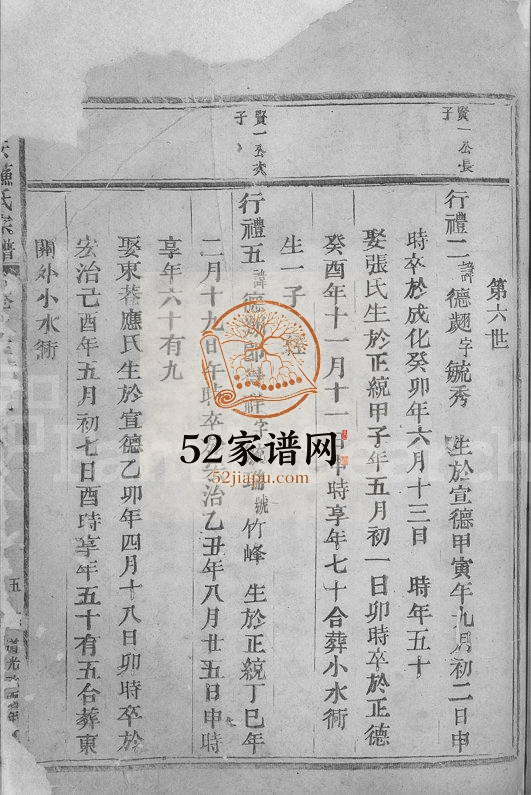 第六世
賢一公長子
行禮二諱德趔字毓秀 生於宣德甲寅年九月初二日申
時卒於成化癸卯年六月十三日 時年五十
娶張氏生於正統甲子年五月初一日卯時卒於正德
癸酉年十一月十一日 時享年七十合葬小水衕
生一子
賢一公次子
行禮五諱德 號竹峰 生於正統丁巳年
二月十九日午時卒 治乙丑年八月廿五日申時
享年六十有九
娶東菴應氏生於宣德乙卯年四月十八日卯時卒於
宏治己酉年五月初七日酉時享年五十有五合葬東
關外小水衕
氏宗譜
五
道光
52家谱网
52jiapu.com